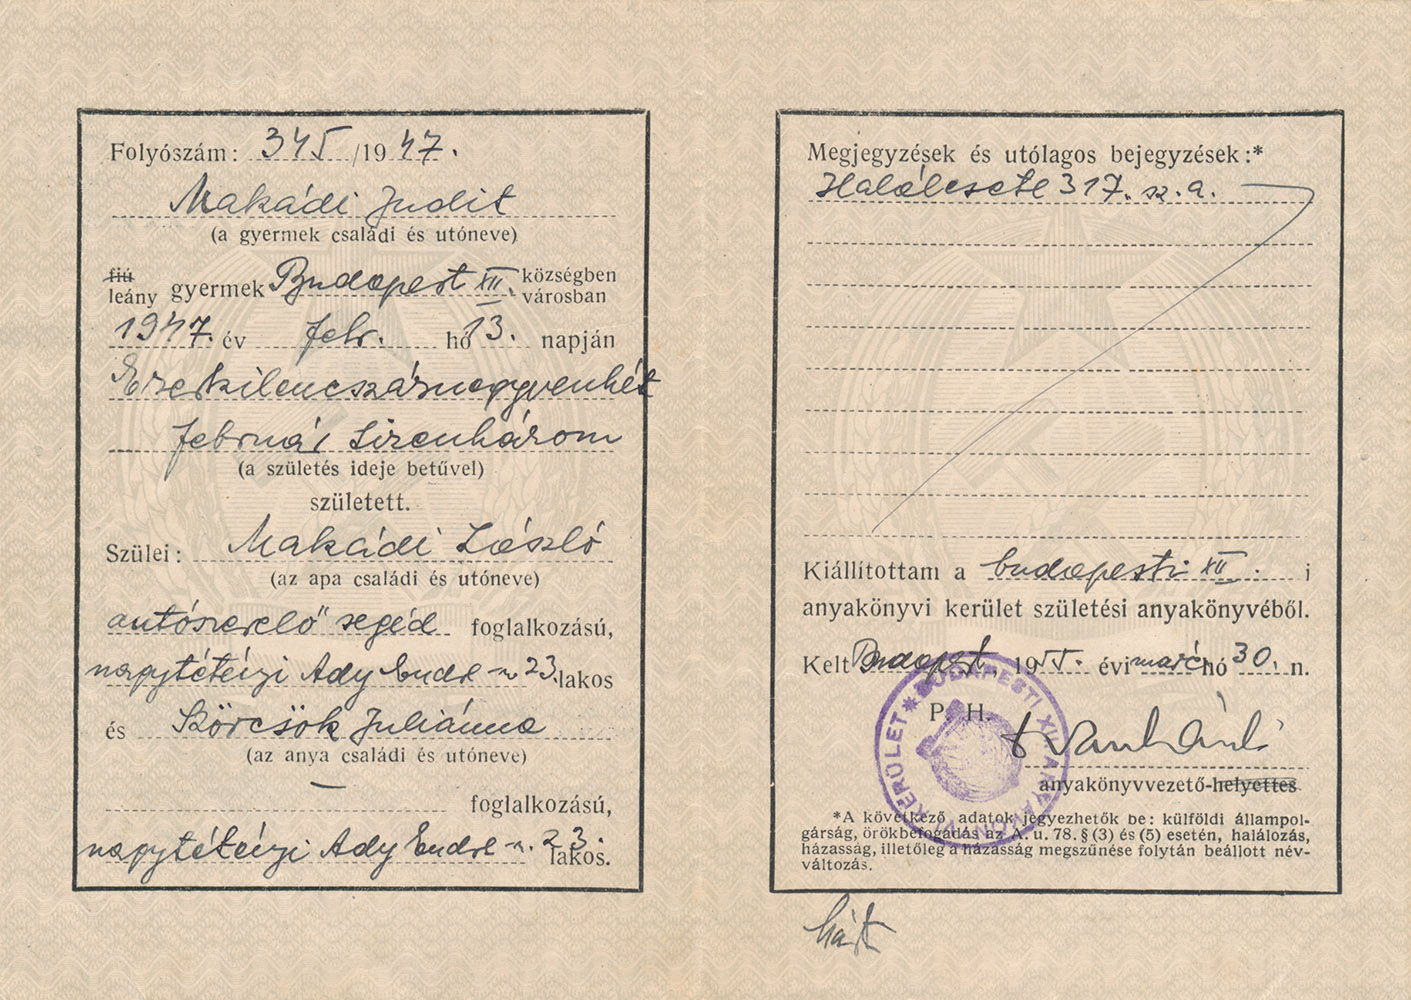 Folyószám: 345/1947.
Makádi Judit
(a gyermek családi és utóneve)
fiú
leány gyermek Budapest XII. községben
városban
1947. év febr. hó 13. napján
Ezerkilencszáznegyvenhét
február tizenhárom
(a születés ideje betűvel)
született.
Szülei: Makádi László
(az apa családi és utóneve)
autószerelő segéd foglalkozású,
nagytétényi Ady Endre u. 23. lakos
és Szörcsök Juliánna
(az anya családi és utóneve)
— foglalkozású,
nagytétényi Ady Endre u. 23. lakos.
Megjegyzések és utólagos bejegyzések:*
Halálesete 317. sz. a.
Kiállítottam a budapesti XII. i
anyakönyvi kerület születési anyakönyvéből.
Kelt Budapest, 1955. évi márc hó 30. n.
P. H.
anyakönyvvezető-helyettes
BUDAPESTI XII. ANYAKÖNYVI KERÜLET
*A következő adatok jegyezhetők be: külföldi állampol-
gárság, örökbefogadás az A. u. 78. § (3) és (5) esetén, halálozás,
házasság, illetőleg a házasság megszűnése folytán beállott név-
változás.